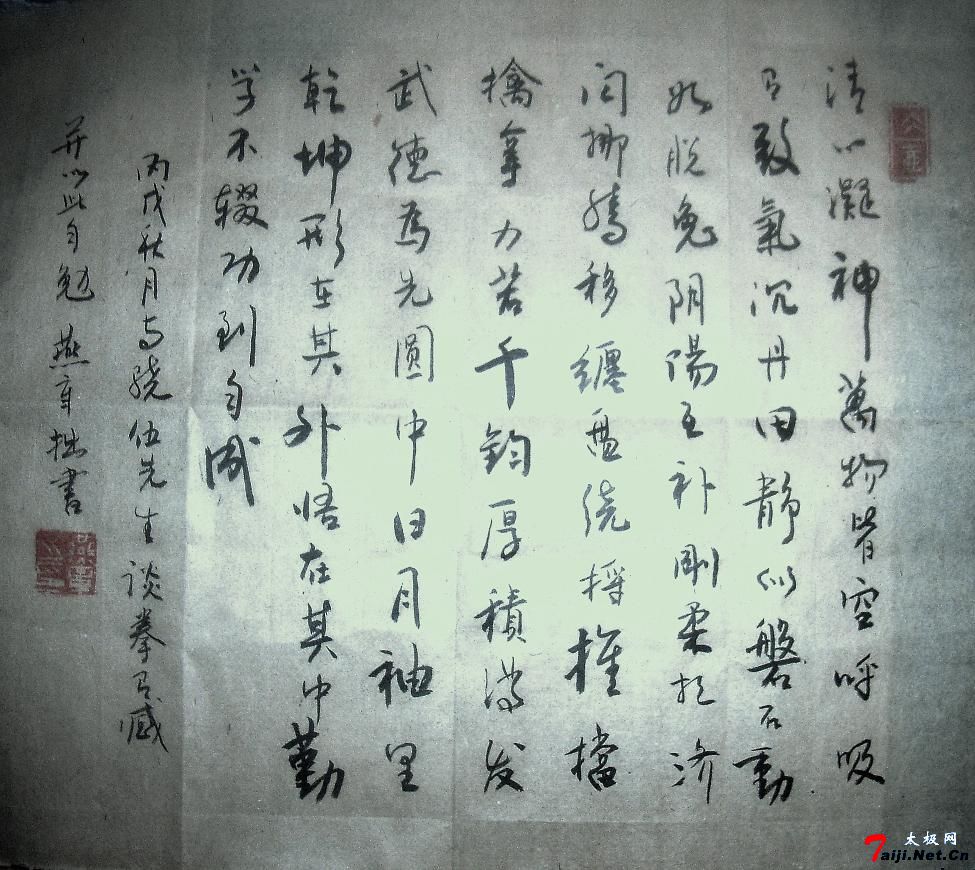 清心凝神萬物皆空呼吸
有致氣沉丹田静似磐石動
如脱兔阴陽互补剛柔相济
闪挪腾移纏盘绕捋推擋
擒拿力若千鈞厚積薄发
武德爲先圆中日月袖里
乾坤形在其外悟在其中勤
学不辍功到自成
丙戌秋月与骁伍先生谈拳有感
并以此自勉 燕章拙書
太极网
Taiji.Net.Cn